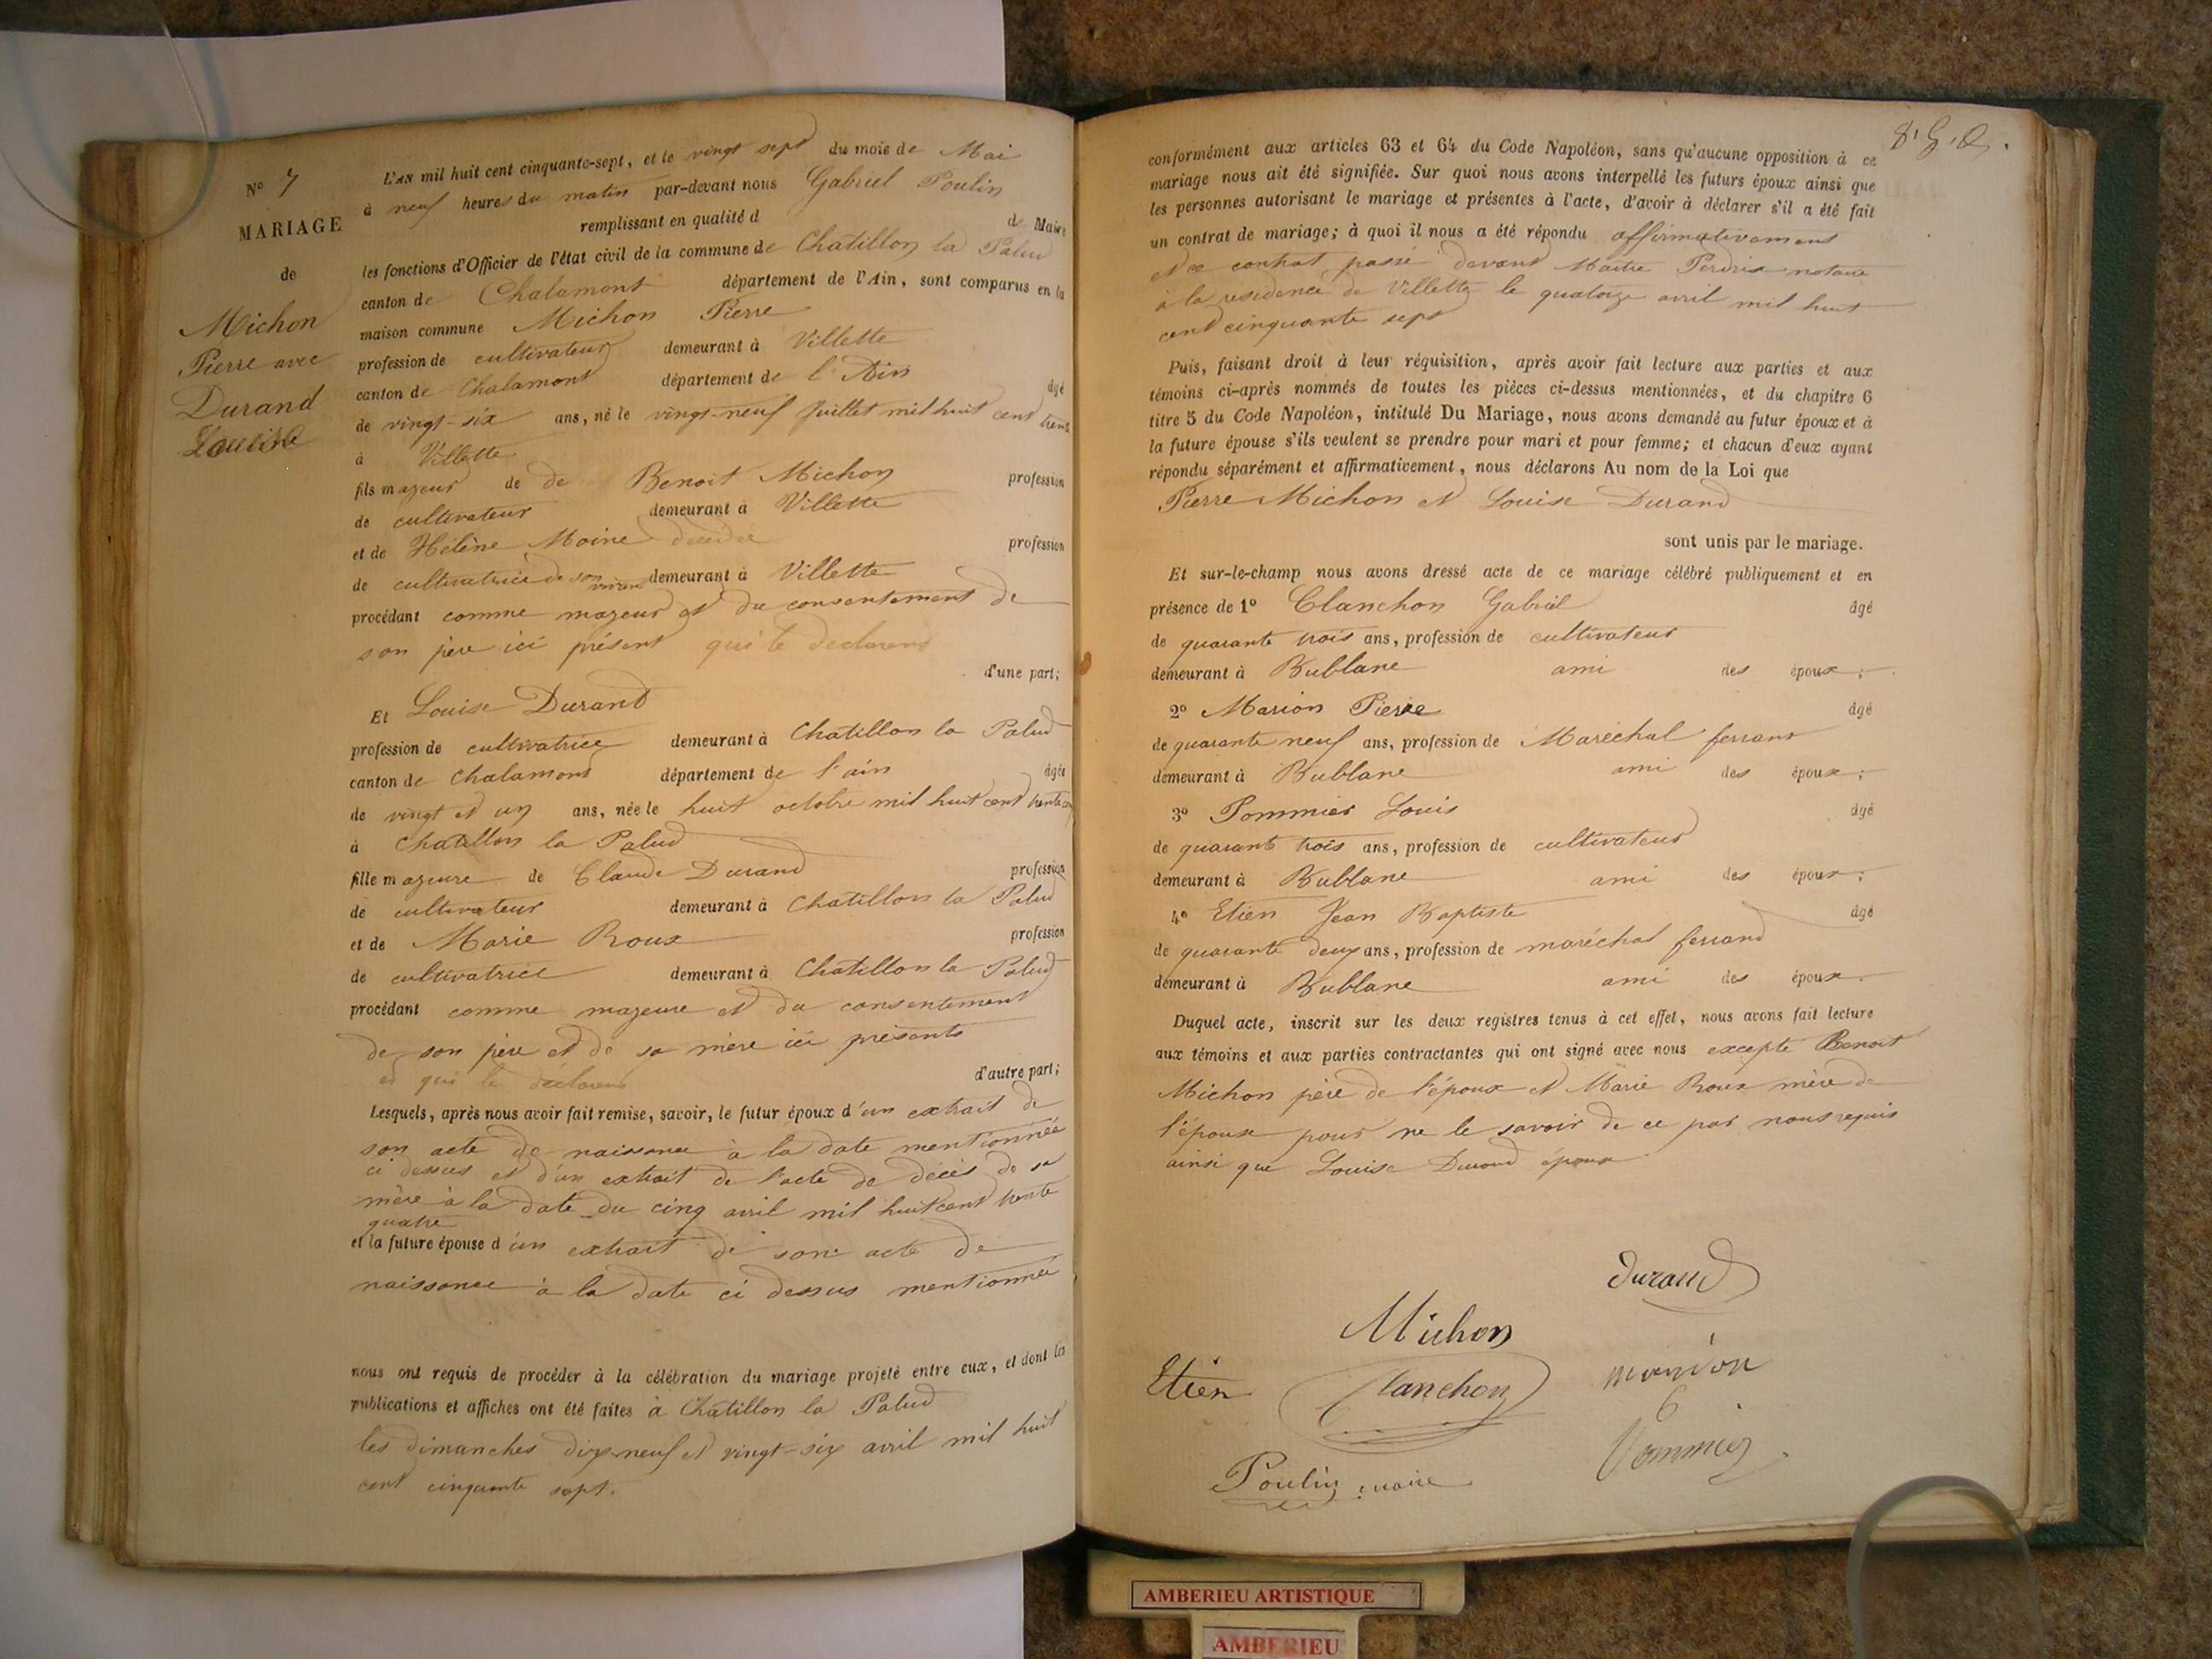 N° 7
MARIAGE
de
Michon
Pierre avec
Durand
Louise
L'AN mil huit cent cinquante-sept, et le vingt sept du mois de Mai
à neuf heures du matin par-devant nous Gabriel Poulin
remplissant en qualité d de Maire
les fonctions d'Officier de l'état civil de la commune de Chatillon la Palud
canton de Chalamont département de l'Ain, sont comparus en la
maison commune Michon Pierre
profession de cultivateur demeurant à Villette
canton de Chalamont département de l'Ain âgé
de vingt-six ans, né le vingt-neuf Juillet mil huit cent trente
à Villette
fils majeur de de Benoit Michon profession
de cultivateur demeurant à Villette
et de Hélène Moine décédée profession
de cultivatrice de son vivant demeurant à Villette
procédant comme majeur et du consentement de
son père ici présent qui le déclarent
d'une part;
Et Louise Durand
profession de cultivatrice demeurant à Chatillon la Palud
canton de Chalamont département de l'ain âgée
de vingt et un ans, née le huit octobre mil huit cent trente
à Chatillon la Palud
fille majeure de Claude Durand profession
de cultivateur demeurant à Chatillon la Palud
et de Marie Roux profession
de cultivatrice demeurant à Chatillon la Palud
procédant comme majeure et du consentement
de son père et de sa mère ici présents
et qui le déclarent d'autre part;
Lesquels, après nous avoir fait remise, savoir, le futur époux d'un extrait de
son acte de naissance à la date mentionnée
ci dessus et d'un extrait de l'acte de décès de sa
mère à la date du cinq avril mil huit cent trente
quatre
et la future épouse d'un extrait de son acte de
naissance à la date ci dessus mentionnée
nous ont requis de procéder à la célébration du mariage projeté entre eux, et dont les
publications et affiches ont été faites à Chatillon la Palud
les dimanches dix-neuf et vingt-six avril mil huit
cent cinquante sept.
conformément aux articles 63 et 64 du Code Napoléon, sans qu'aucune opposition à ce
mariage nous ait été signifiée. Sur quoi nous avons interpellé les futurs époux ainsi que
les personnes autorisant le mariage et présentes à l'acte, d'avoir à déclarer s'il a été fait
un contrat de mariage; à quoi il nous a été répondu affirmativement
et ce contrat passé devant Maitre Perdrix notaire
à la residence de Villette le quatorze avril mil huit
cent cinquante sept
Puis, faisant droit à leur réquisition, après avoir fait lecture aux parties et aux
témoins ci-après nommés de toutes les pièces ci-dessus mentionnées, et du chapitre 6
titre 5 du Code Napoléon, intitulé Du Mariage, nous avons demandé au futur époux et à
la future épouse s'ils veulent se prendre pour mari et pour femme; et chacun d'eux ayant
répondu séparément et affirmativement, nous déclarons Au nom de la Loi que
Pierre Michon et Louise Durand
sont unis par le mariage.
Et sur-le-champ nous avons dressé acte de ce mariage célébré publiquement et en
présence de 1° Clanchon Gabriel âgé
de quarante trois ans, profession de cultivateur
demeurant à Bublane ami des époux;
2° Marion Pierre âgé
de quarante neuf ans, profession de Maréchal ferrant
demeurant à Bublane ami des époux;
3° Pommier Louis âgé
de quarante trois ans, profession de cultivateur
demeurant à Bublane ami des époux;
4° Etien Jean Baptiste âgé
de quarante deux ans, profession de maréchal ferrand
demeurant à Bublane ami des époux.
Duquel acte, inscrit sur les deux registres tenus à cet effet, nous avons fait lecture
aux témoins et aux parties contractantes qui ont signé avec nous excepté Benoit
Michon père de l'époux et Marie Roux mère de
l'épouse pour ne le savoir de ce par nous requis
ainsi que Louise Durand épouse
Durand
Michon
Etien Clanchon marion
Pommier
Poulin maire
AMBERIEU ARTISTIQUE
AMBERIEU